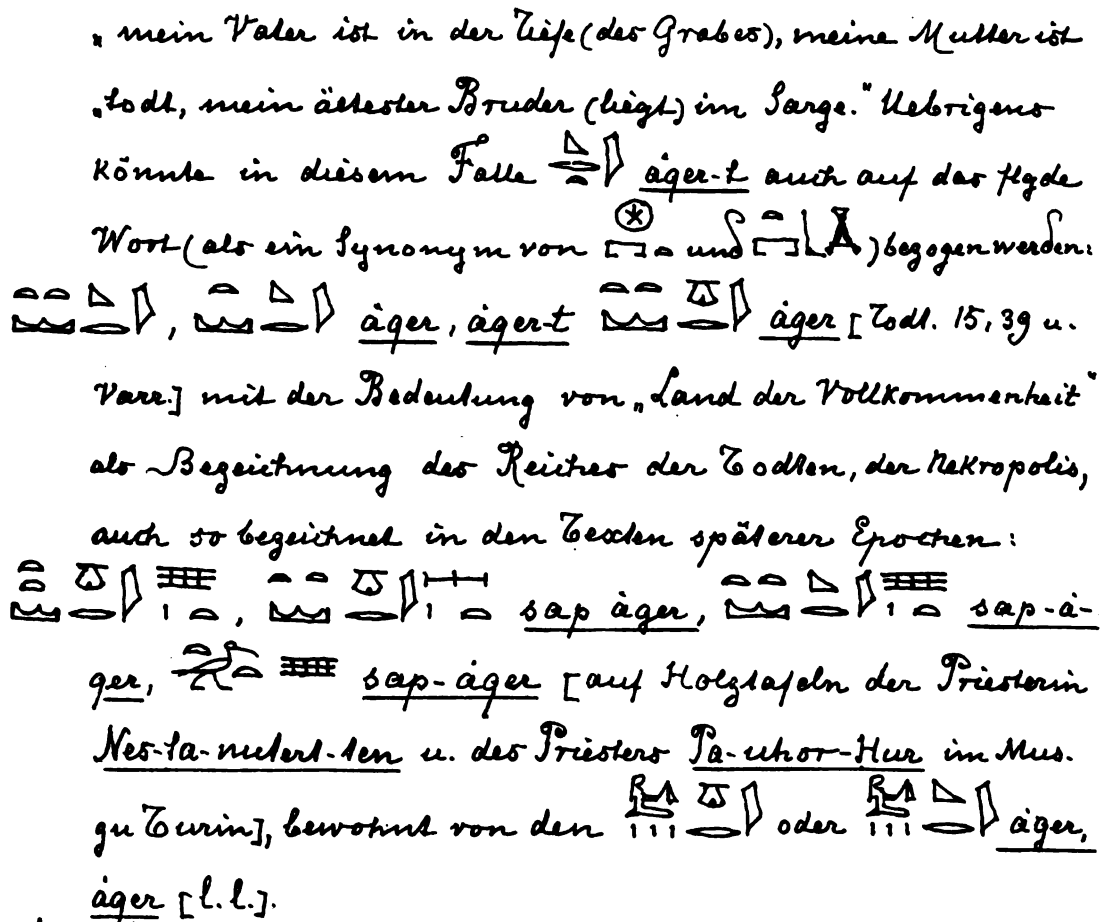 „mein Vater ist in der Tiefe (des Grabes), meine Mutter ist
„todt, mein ältester Bruder (liegt) im Sarge." Uebrigens
könnte in diesem Falle áger-t auch auf das flgde
Wort (als ein Synonym von und ) bezogen werden:
, áger, áger-t áger [Todt. 15, 39 u.
Varr.] mit der Bedeutung von „Land der Vollkommenheit"
als Bezeichnung des Reiches der Todten, der Nekropolis,
auch so bezeichnet in den Texten späterer Epochen:
, sap áger, sap-á-
ger, sap-áger [auf Holztafeln der Priesterin
Nes-ta-nutert-ten u. des Priesters Pa-uhor-Hur im Mus.
zu Turin], bewohnt von den oder áger,
áger [l. l.].